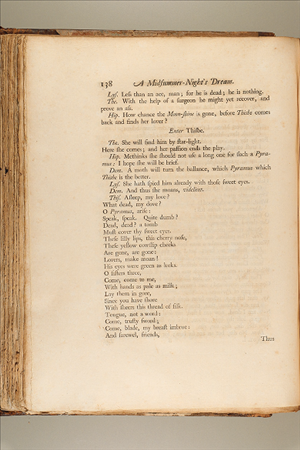 138 A Midsummer-Night's Dream.
Lys. Less than an ace, man; for he is dead; he is nothing.
The. With the help of a surgeon he might yet recover, and
prove an ass.
Hip. How chance the Moon-shine is gone, before Thisbe comes
back and finds her lover?
Enter Thisbe.
The. She will find him by star-light.
Here she comes; and her passion ends the play.
Hip. Methinks she should not use a long one for such a Pyra-
mus: I hope she will be brief.
Dem. A moth will turn the ballance, which Pyramus which
Thisbe is the better.
Lys. She hath spied him already with those sweet eyes.
Dem. And thus she moans, videlicet.
Thisb. Asleep, my love?
What dead, my dove?
O Pyramus, arise:
Speak, speak. Quite dumb?
Dead, dead? a tomb
Must cover thy sweet eyes.
These lilly lips, this cherry nose,
These yellow cowslip cheeks
Are gone, are gone:
Lovers, make moan!
His eyes were green as leeks.
O sisters three,
Come, come to me,
With hands as pale as milk;
Lay them in gore,
Since you have shore
With shears this thread of silk.
Tongue, not a word:
Come, trusty sword;
Come, blade, my breast imbrue:
And farewel, friends,
Thus